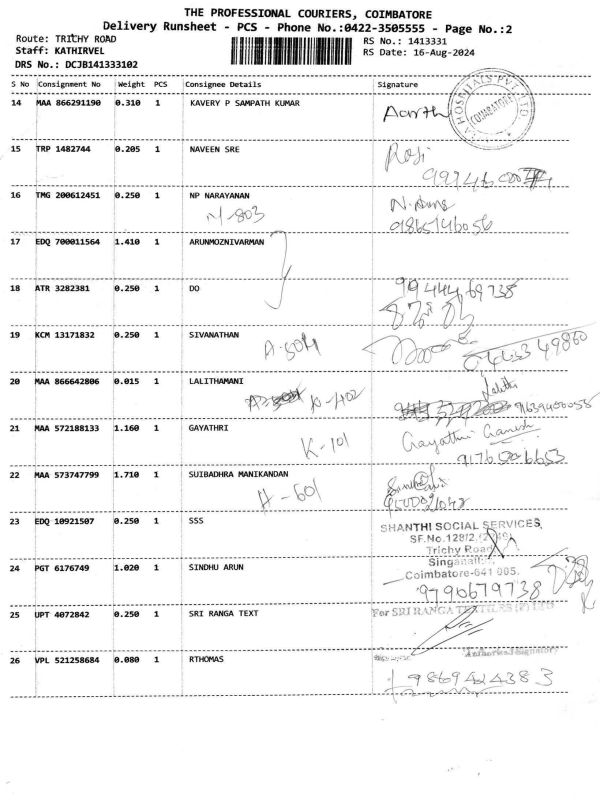 THE PROFESSIONAL COURIERS, COIMBATORE
Delivery Runsheet - PCS - Phone No.:0422-3505555 - Page No.:2
Route: TRICHY ROAD
RS No.: 1413331
Staff: KATHIRVEL
RS Date: 16-Aug-2024
DRS No.: DCJB141333102
S No Consignment No Weight PCS Consignee Details Signature
14 MAA 866291190 0.310 1 KAVERY P SAMPATH KUMAR
HOSPITALS PVT LTD.
COIMBATORE
15 TRP 1482744 0.205 1 NAVEEN SRE Roji
16 TMG 200612451 0.250 1 NP NARAYANAN
17 EDQ 700011564 1.410 1 ARUNMOZNIVARMAN
18 ATR 3282381 0.250 1 DO
19 KCM 13171832 0.250 1 SIVANATHAN
20 MAA 866642806 0.015 1 LALITHAMANI Lalitha
21 MAA 572188133 1.160 1 GAYATHRI Gayathri Ganesh
K-101
22 MAA 573747799 1.710 1 SUIBADHRA MANIKANDAN
H-601
23 EDQ 10921507 0.250 1 SSS SHANTHI SOCIAL SERVICES
SF.No.128/2,
Trichy Road
24 PGT 6176749 1.020 1 SINDHU ARUN
Coimbatore-641 005.
9790679738
25 UPT 4072842 0.250 1 SRI RANGA TEXT For SRI RANGA TEXTILES (P) LTD
Authorised Signatory
26 VPL 521258684 0.080 1 RTHOMAS
9869424383